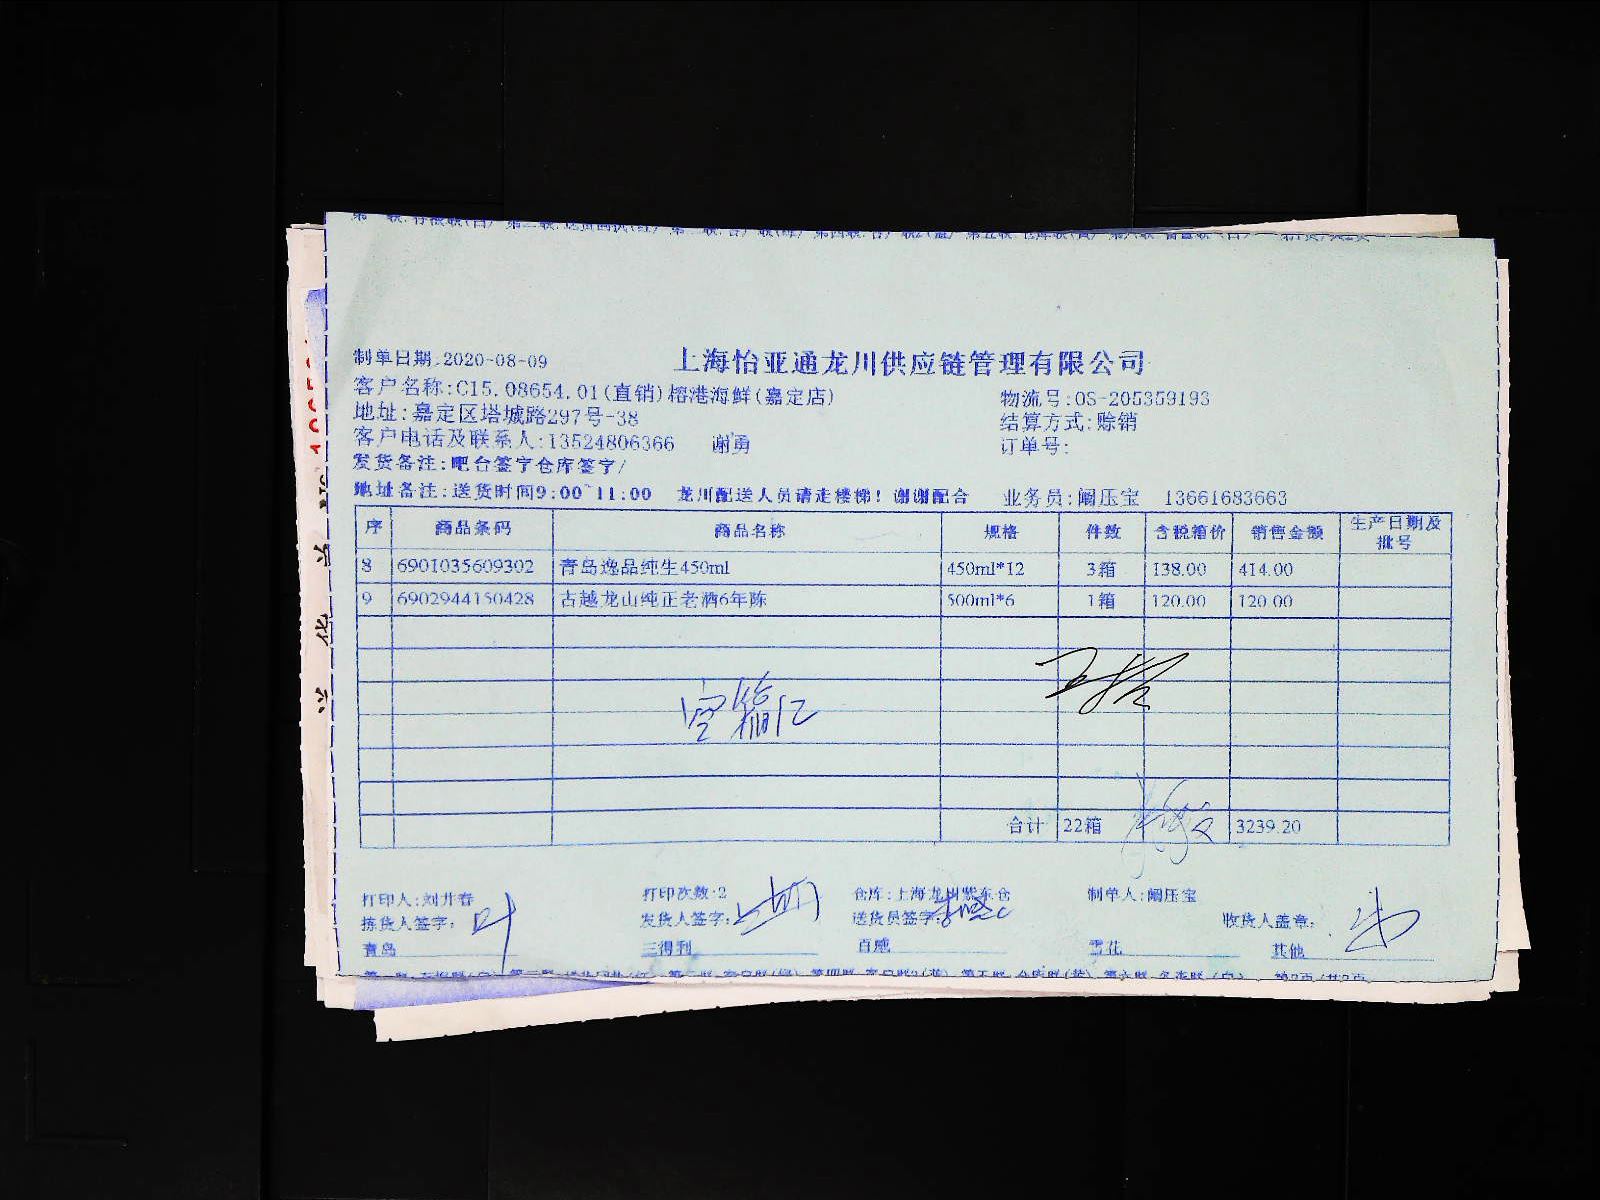 制单日期:2020-08-09
上海怡亚通龙川供应链管理有限公司
客户名称:C15.08654.01(直销)榕港海鲜(嘉定店)
物流号:OS-205359193
地址:嘉定区塔城路297号-38
结算方式:赊销
客户电话及联系人:13524806366 谢勇
订单号:
发货备注:吧台签字仓库签字/
地址备注:送货时间9:00~11:00 龙川配送人员请走楼梯!谢谢配合
业务员:阚压宝 13661683663
序 商品条码 商品名称 规格 件数 含税箱价 销售金额 生产日期及批号
8 6901035609302 青岛逸品纯生450ml 450ml*12 3箱 138.00 414.00
9 6902944150428 古越龙山纯正老酒6年陈 500ml*6 1箱 120.00 120.00
合计 22箱 3239.20
打印人:刘廾春 打印次数:2 仓库:上海龙川紫东仓 制单人:阚压宝
拣货人签字: 发货人签字: 送货员签字: 收货人盖章:
青岛 三得利 百威 雪花 其他